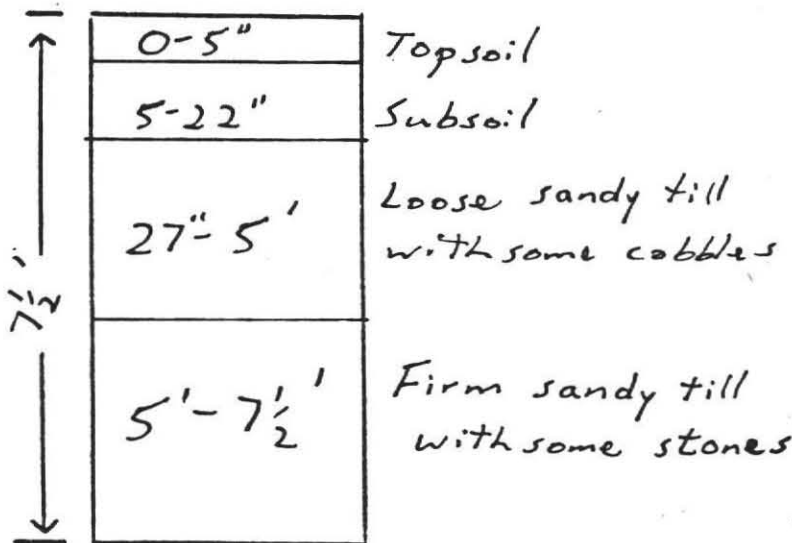 0-5" Topsoil
5-22" Subsoil
27"-5' Loose sandy till
with some cobbles
7½'
5'-7½' Firm sandy till
with some stones